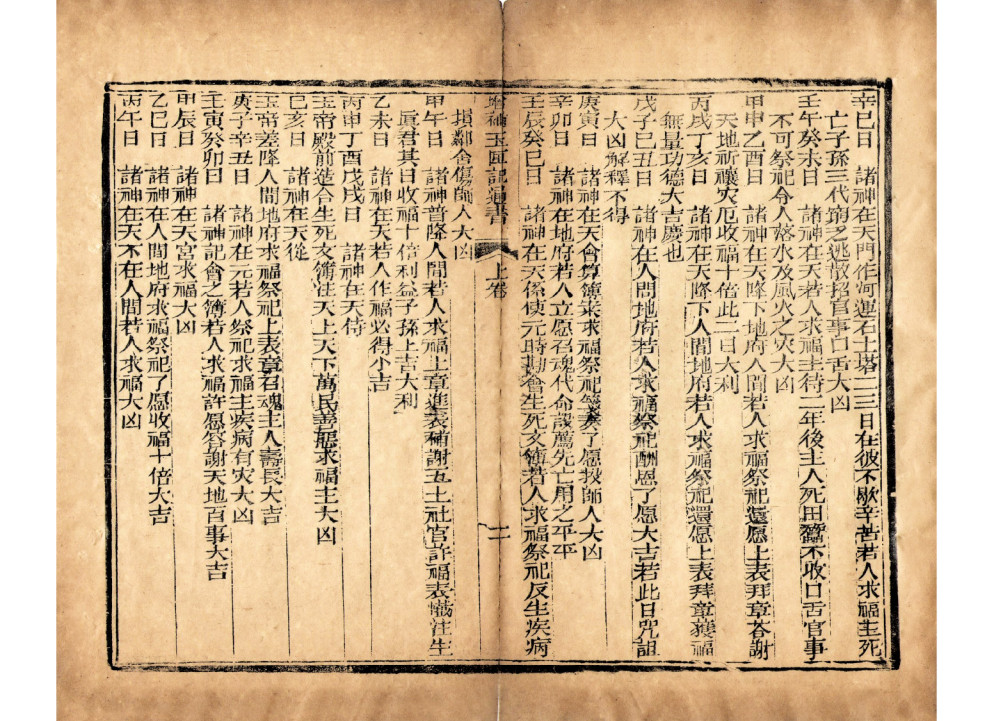 辛巳日　諸神在天門作河運石土塔二三日在彼不歇辛苦若人求福主死
亡子孫三代窮乏逃散招官事口舌大凶
壬午癸未日　諸神在天若人求福主待二年後主人死田蠶不收口舌官事
不可祭祀令人落水及風火之灾大凶
甲申乙酉日　諸神在天降下地府人間若人求福祭祀還愿上表拜章荅謝
天地祈禳灾厄收福十倍此二日大利
丙戌丁亥日　諸神在天降下人間地府若人求福祭祀還愿上表拜章獲福
無量功德大吉慶也
戊子己丑日　諸神在人間地府若人求福祭祀酬恩了愿大吉若此日咒詛
大凶解釋不得
庚寅日　諸神在天會算簿来求福祭祀箋奏了愿救師人大凶
辛卯日　諸神在地府若人立愿召魂代命設薦先亡用之平平
壬辰癸巳日　諸神在天係使元時期會生死文簿若人求福祭祀反生疾病
增補玉匣記通書　上卷　二
損鄰舍傷師人大凶
甲午日　諸神普降人間若人求福上章進表補謝五土社官許福表懺注生
真君其日收福十倍利益子孫上吉大利
乙未日　諸神在天若人作福必得小吉
丙申丁酉戊戌日　諸神在天侍
玉帝殿前造合生死文簿注天上天下萬民善惡求福主大凶
己亥日　諸神在天從
玉帝差降人間地府求福祭祀上表章召魂主人壽長大吉
庚子辛丑日　諸神在元若人祭祀求福主疾病有灾大凶
壬寅癸卯日　諸神記會之簿若人求福許愿答謝天地百事大吉
甲辰日　諸神在天宮求福大凶
乙巳日　諸神在人間地府求福祭祀了愿收福十倍大吉
丙午日　諸神在天不在人間若人求福大凶